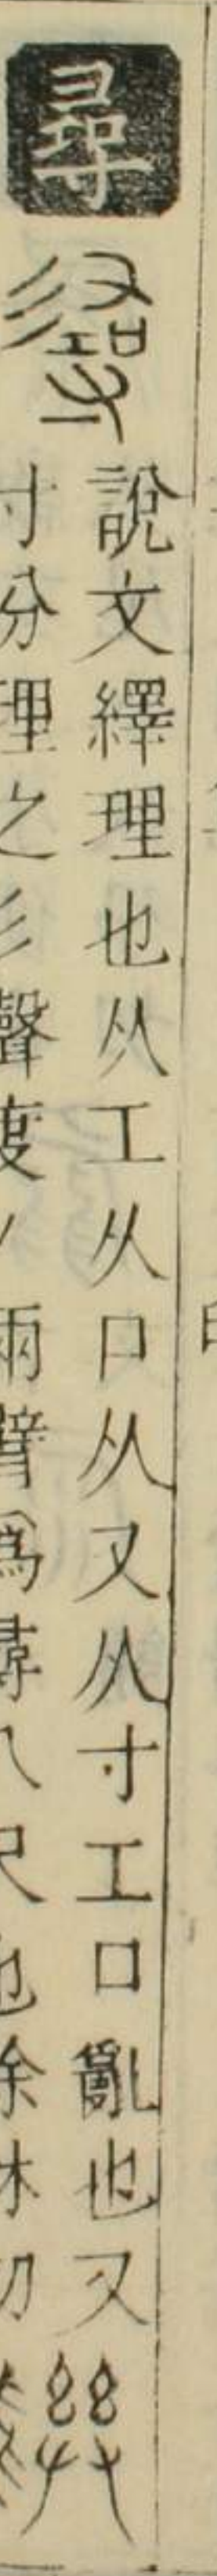 尋
說文繹理也从工从口从又从寸工口亂也又
寸分理之彡聲度人兩臂爲尋八尺也徐林切